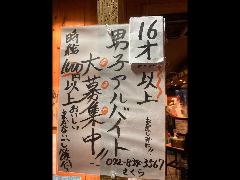 16才以上
男子アルバイト
大募集中!!
時給1000円以上
おいしい
072-838-3567
さくら